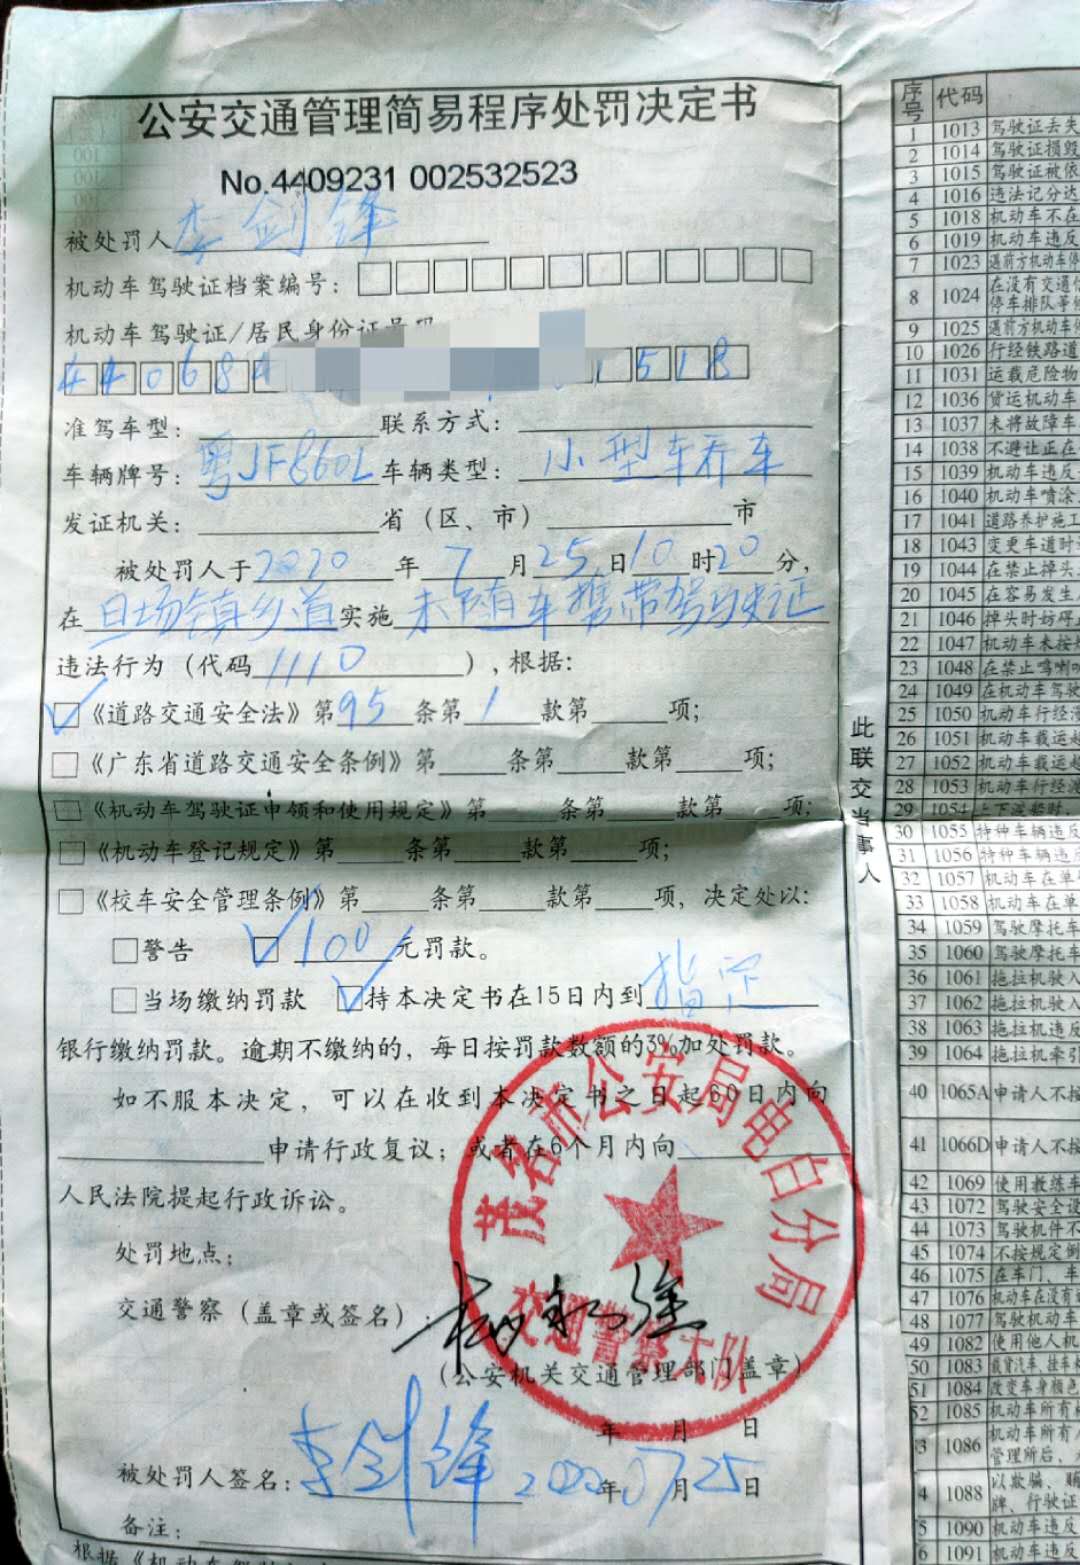 公安交通管理简易程序处罚决定书
No.4409231 002532523
被处罚人 李剑锋
机动车驾驶证档案编号：
机动车驾驶证/居民身份证号码
440684 1518
准驾车型： 联系方式：
车辆牌号：粤JF860L 车辆类型：小型车乔车
发证机关： 省（区、市） 市
被处罚人于2020年7月25日10时20分，
在旦场镇乡道实施未随车携带驾驶证
违法行为（代码1110），根据：
☑《道路交通安全法》第95条第1款第 项；
□《广东省道路交通安全条例》第 条第 款第 项；
□《机动车驾驶证申领和使用规定》第 条第 款第 项；
□《机动车登记规定》第 条第 款第 项；
□《校车安全管理条例》第 条第 款第 项，决定处以：
□警告 ☑100元罚款。
□当场缴纳罚款 ☑持本决定书在15日内到指定
银行缴纳罚款。逾期不缴纳的，每日按罚款数额的3%加处罚款。
如不服本决定，可以在收到本决定书之日起60日内向
申请行政复议；或者在6个月内向
人民法院提起行政诉讼。
处罚地点：
交通警察（盖章或签名）：
（公安机关交通管理部门盖章）
年 月 日
茂名市公安局电白分局
交通警察大队
被处罚人签名：李剑锋 2020年07月25日
备注：
根据《机动车驾驶
此联交当事人
序号 代码
1 1013 驾驶证丢失
2 1014 驾驶证损毁
3 1015 驾驶证被依
4 1016 违法记分达
5 1018 机动车不在
6 1019 机动车违反
7 1023 遇前方机动车停
8 1024 在没有交通信
停车排队等候
9 1025 遇前方机动车停
10 1026 行经铁路道
11 1031 运载危险物
12 1036 货运机动车
13 1037 未将故障车
14 1038 不避让正在
15 1039 机动车违反
16 1040 机动车喷涂
17 1041 道路养护施工
18 1043 变更车道时
19 1044 在禁止掉头
20 1045 在容易发生
21 1046 掉头时妨碍
22 1047 机动车未按
23 1048 在禁止鸣喇
24 1049 在机动车驾驶
25 1050 机动车行经漫
26 1051 机动车载运超
27 1052 机动车载运超
28 1053 机动车行经渡
29 1054 上下渡船时
30 1055 特种车辆违反
31 1056 特种车辆违反
32 1057 机动车在单
33 1058 机动车在单
34 1059 驾驶摩托车
35 1060 驾驶摩托车
36 1061 拖拉机驶入
37 1062 拖拉机驶入
38 1063 拖拉机违反
39 1064 拖拉机牵引
40 1065A 申请人不按
41 1066D 申请人不按
42 1069 使用教练车
43 1072 驾驶安全设
44 1073 驾驶机件不
45 1074 不按规定倒
46 1075 在车门、车
47 1076 机动车在没有
48 1077 驾驶机动车
49 1082 使用他人机
50 1083 载货汽车、挂车
51 1084 改变车身颜色
52 1085 机动车所有
3 1086 机动车所有人
管理所后，
4 1088 以欺骗、贿
牌、行驶证
5 1090 机动车违反
6 1091 机动车违反